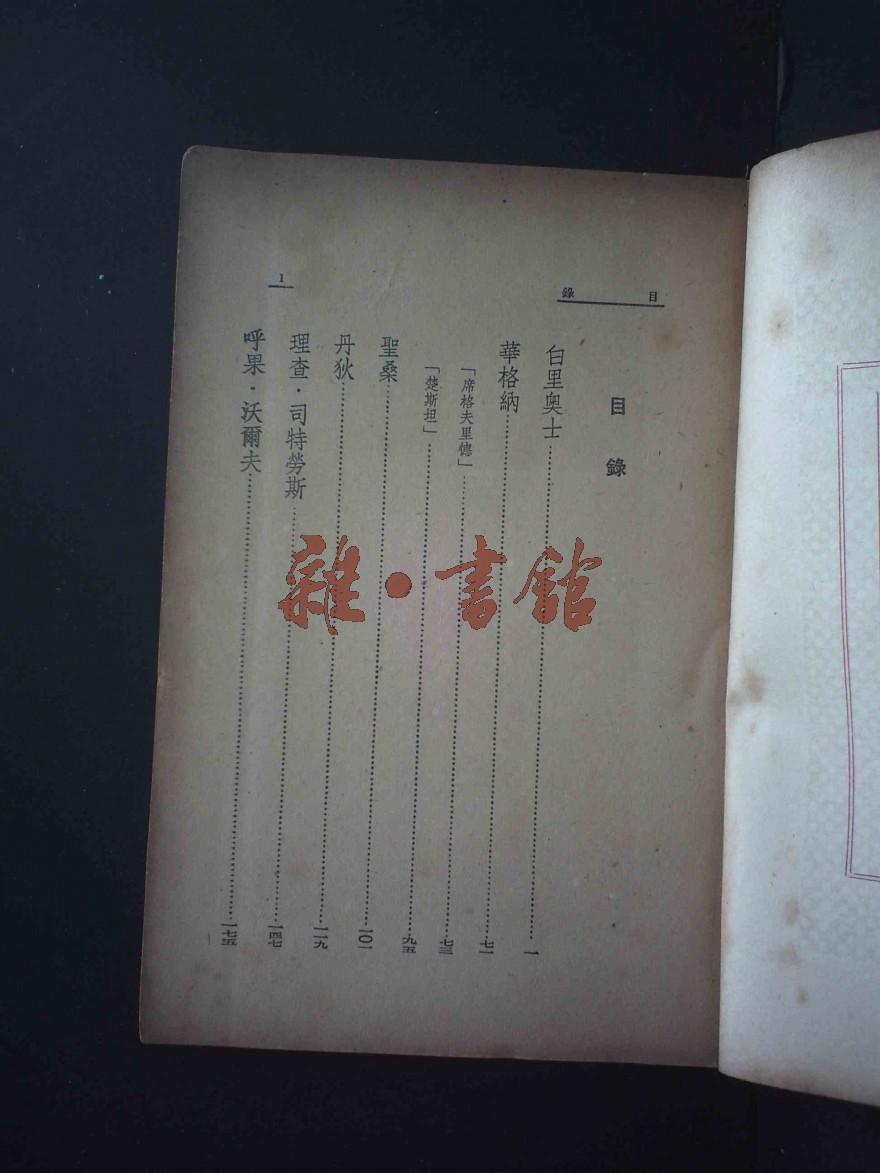 目錄
目錄
白里奧士……一
華格納……七一
「席格夫里德」……七三
「楚斯坦」……九五
聖桑……一〇一
丹狄……一一九
理查·司特勞斯……一四七
呼果·沃爾夫……一七五
1
雜·書館